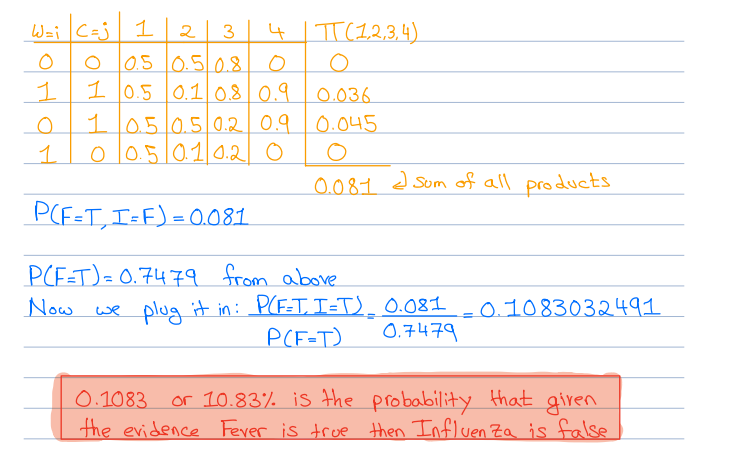 W=i C=j 1 2 3 4 π(1,2,3,4)
0 0 0.5 0.5 0.8 0 0
1 1 0.5 0.1 0.8 0.9 0.036
0 1 0.5 0.5 0.2 0.9 0.045
1 0 0.5 0.1 0.2 0 0
0.081 ↲ sum of all products
P(F=T, I=F) = 0.081
P(F=T) = 0.7479 from above
Now we plug it in: P(F=T, I=T) / P(F=T) = 0.081 / 0.7479 = 0.1083032491
0.1083 or 10.83% is the probability that given
the evidence Fever is true then Influenza is false